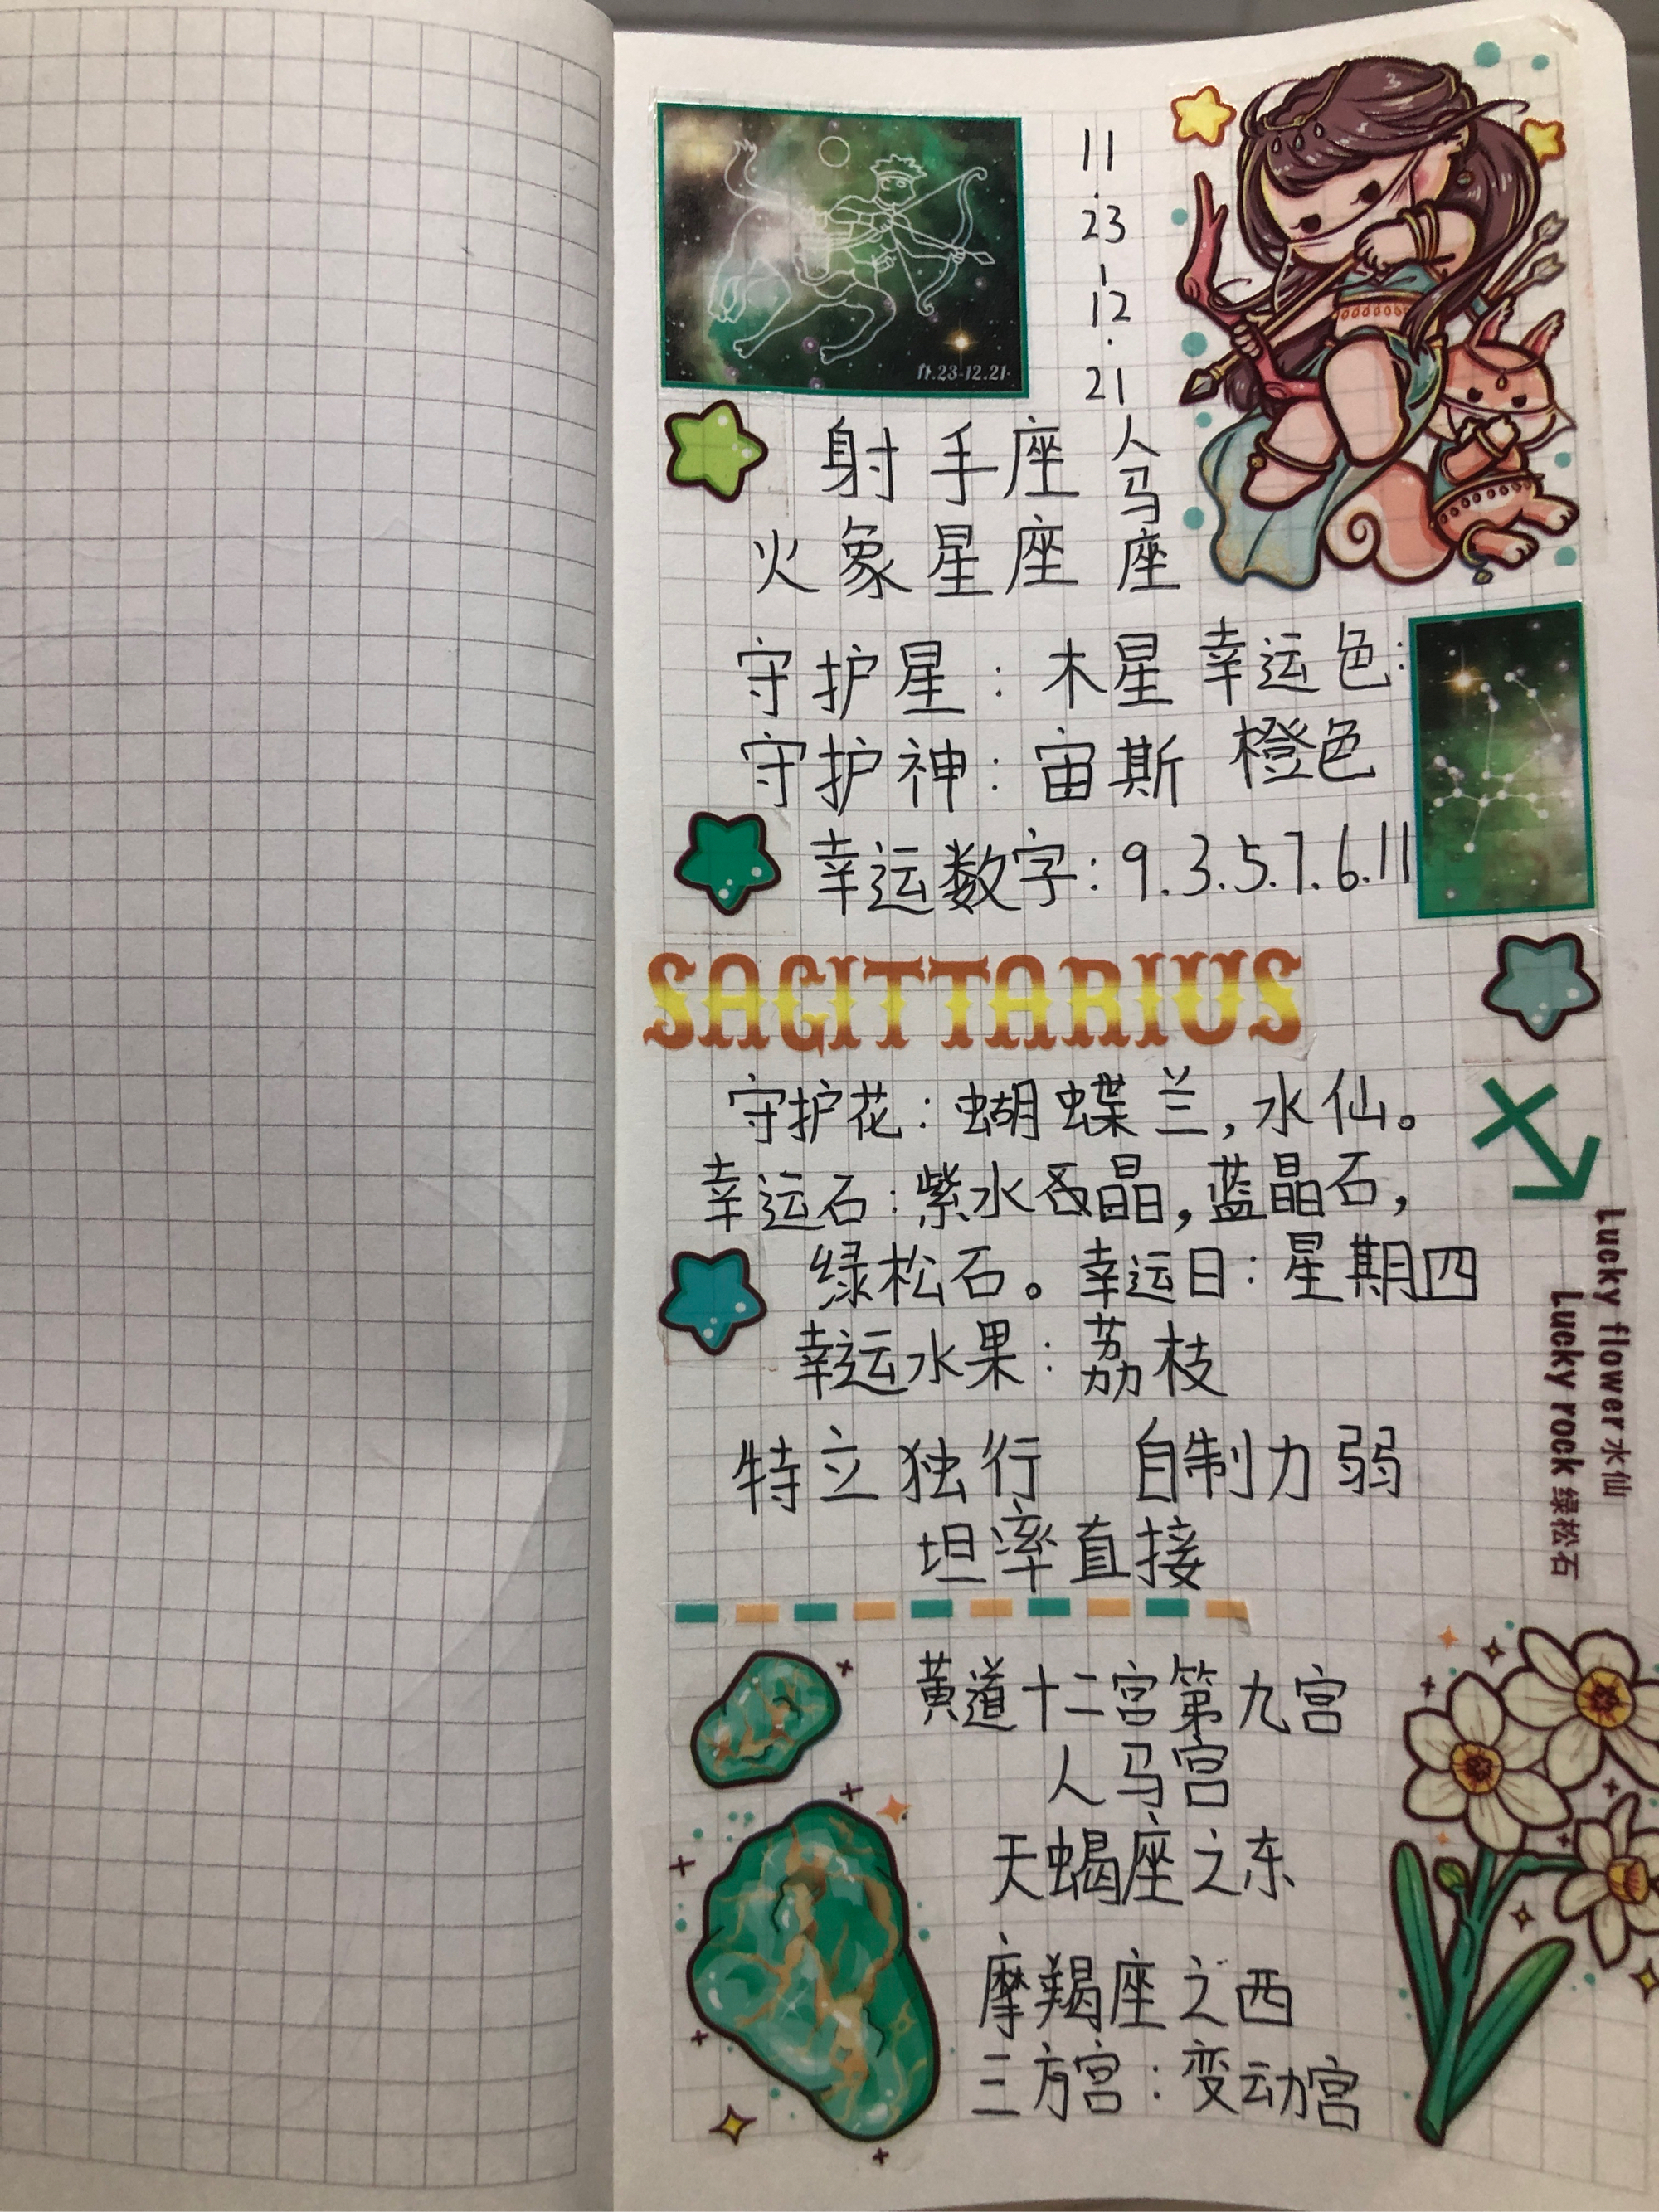 11.23-12.21
11
.
23
-
12
.
21
射手座
人马座
火象星座
守护星：木星
幸运色：
橙色
守护神：宙斯
幸运数字：9.3.5.7.6.11
SAGITTARIUS
守护花：蝴蝶兰，水仙。
幸运石：紫水晶，蓝晶石，
绿松石。幸运日：星期四
幸运水果：荔枝
Lucky flower 水仙
Lucky rock 绿松石
特立独行 自制力弱
坦率直接
黄道十二宫第九宫
人马宫
天蝎座之东
摩羯座之西
三方宫：变动宫